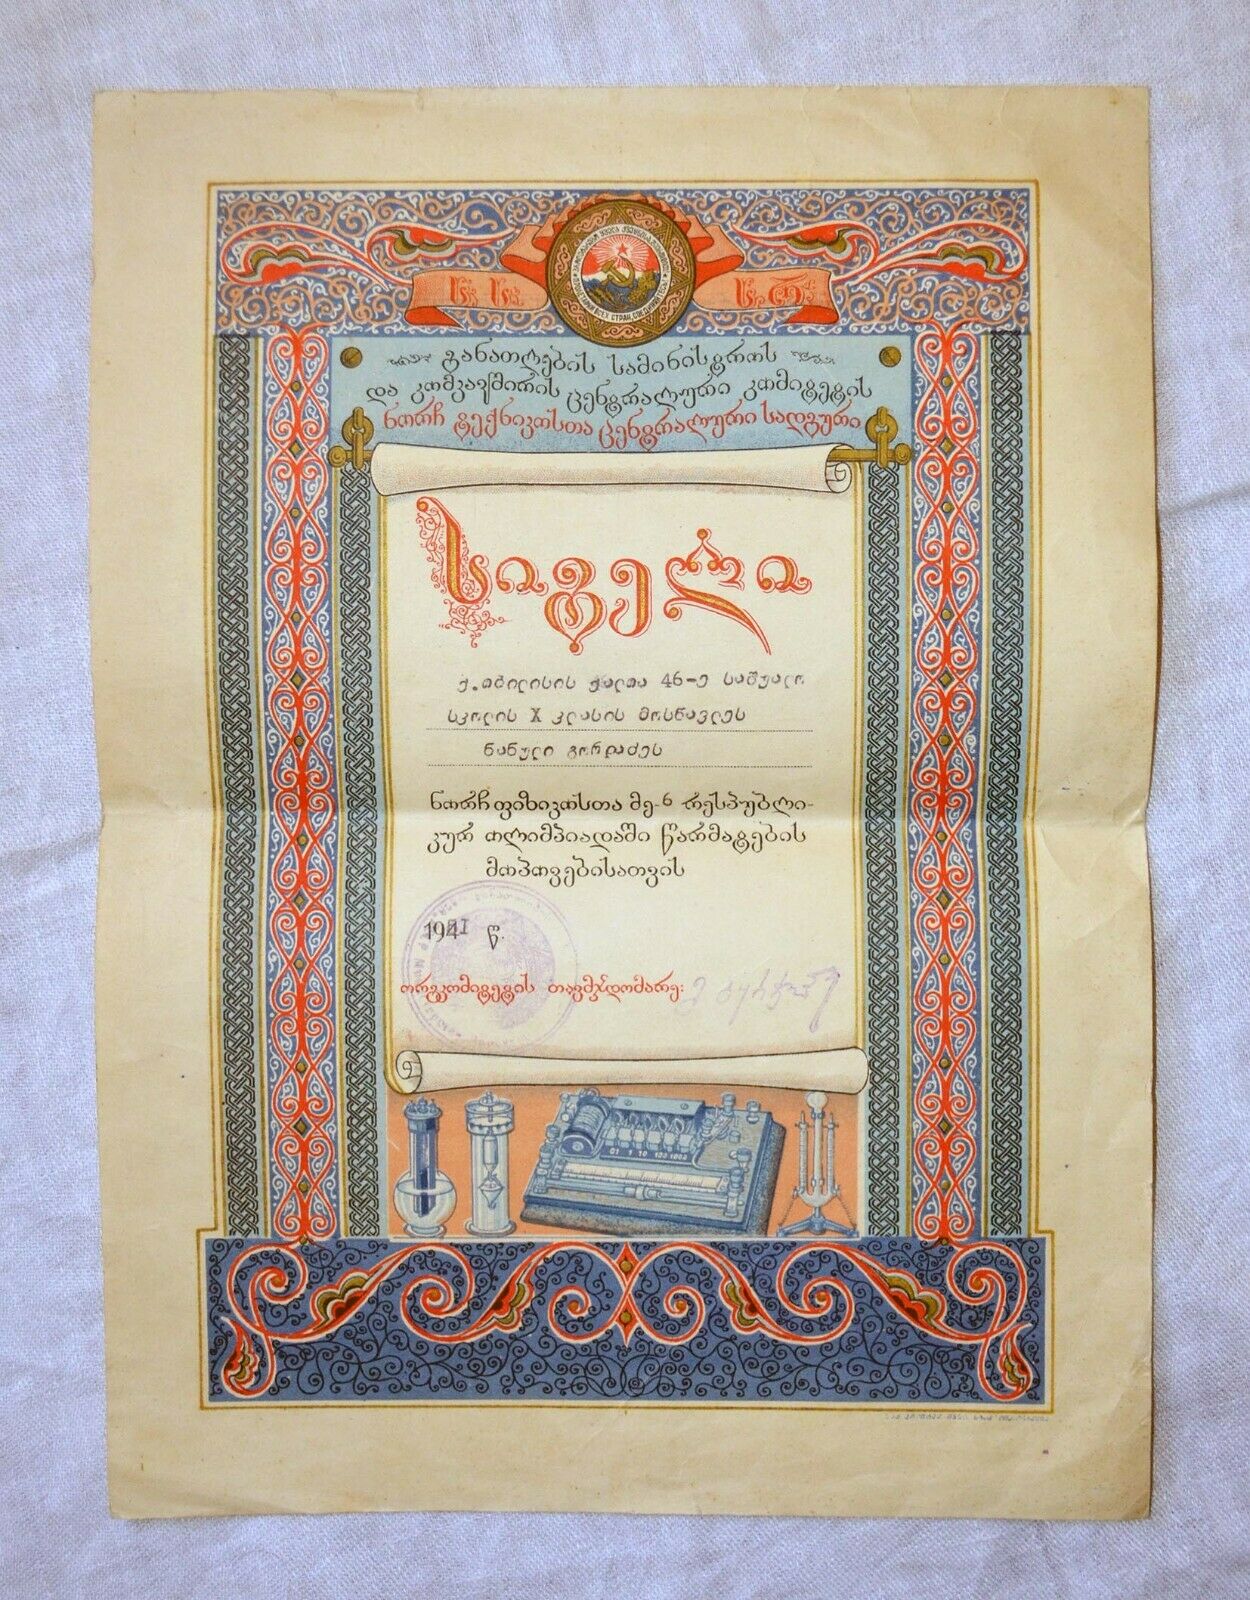 ს ს ს რ
ПРОЛЕТАРИИ ВСЕХ СТРАН, СОЕДИНЯЙТЕСЬ!
განათლების სამინისტროს
და კომკავშირის ცენტრალური კომიტეტის
ნორჩ ტექნიკოსთა ცენტრალური სადგური
სიგელი
ქ.თბილისის ქალთა 46-ე საშუალო
სკოლის X კლასის მოსწავლეს
ნანული გორდაძეს
ნორჩ ფიზიკოსთა მე-6 რესპუბლი-
კურ ოლიმპიადაში წარმატების
მოპოვებისათვის
19 წ.
ორგკომიტეტის თავმჯდომარე:
01 1 10 100 1000